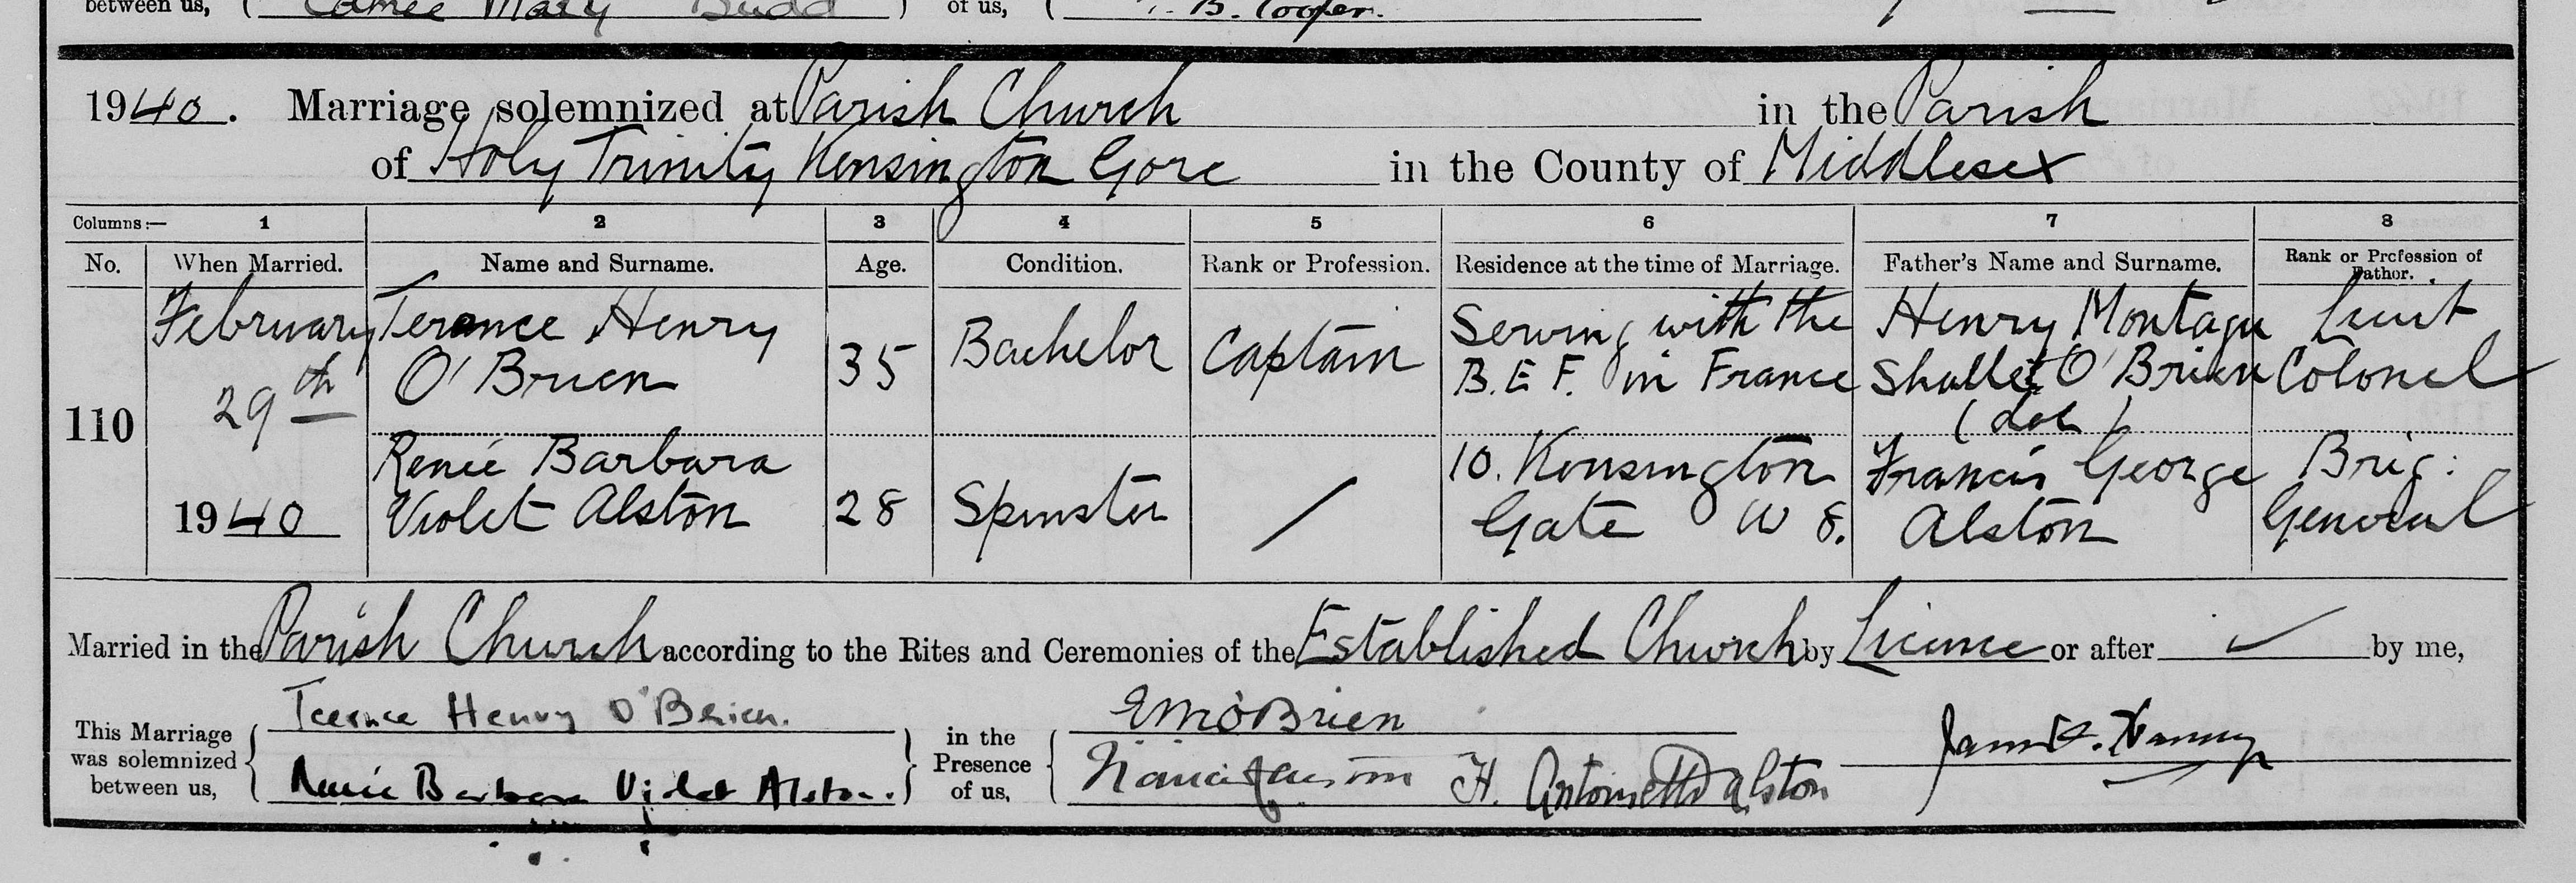 between us, ( Mary Budd ) of us, ( B. Cooper.
1940. Marriage solemnized at Parish Church in the Parish
of Holy Trinity Kensington Gore in the County of Middlesex
Columns:— 1 2 3 4 5 6 7 8
No. When Married. Name and Surname. Age. Condition. Rank or Profession. Residence at the time of Marriage. Father's Name and Surname. Rank or Profession of Father.
110 February 29th 1940
Terence Henry O'Brien 35 Bachelor Captain Serving with the B.E.F. in France Henry Montagu Shallet O'Brien Lieut Colonel
Renée Barbara Violet Alston 28 Spinster / 10. Kensington Gate W 8. Francis George Alston Brig: General
Married in the Parish Church according to the Rites and Ceremonies of the Established Church by Licence or after by me,
This Marriage was solemnized between us, { Terence Henry O'Brien. } in the Presence of us, { E M O'Brien
Renée Barbara Violet Alston. H. Antoinette Alston